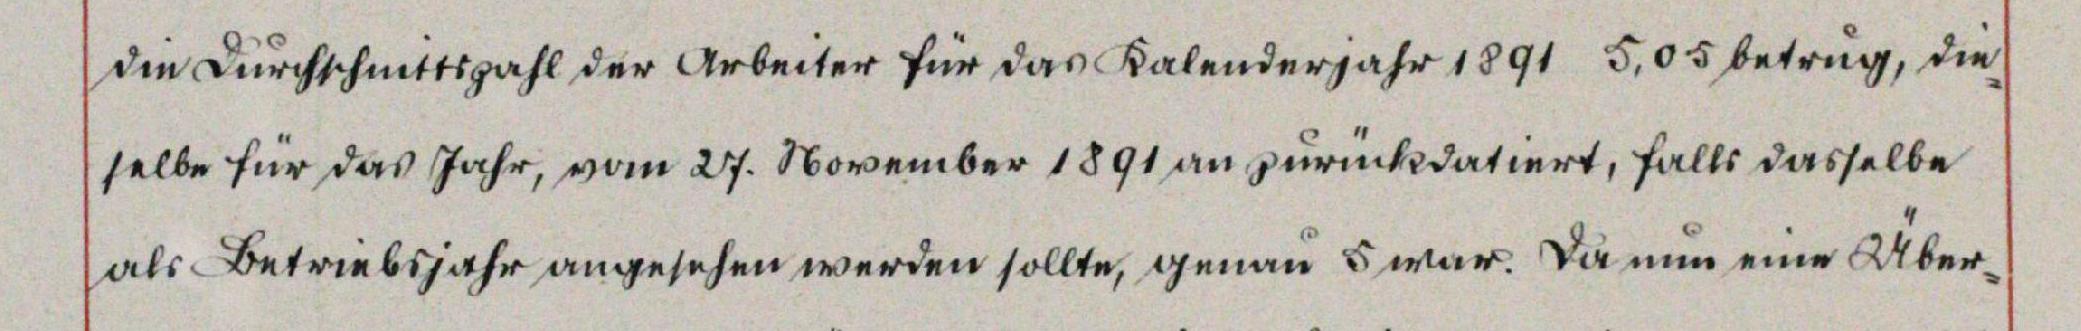 die Durchschnittszahl der Arbeiter für das Kalenderjahr 1891 5,05 betrug, die-
selbe für das Jahr, vom 27. November 1891 an zurückdatiert, falls dasselbe
als Betriebsjahr angesehen werden sollte, genau 5 war. Da nun eine Über-